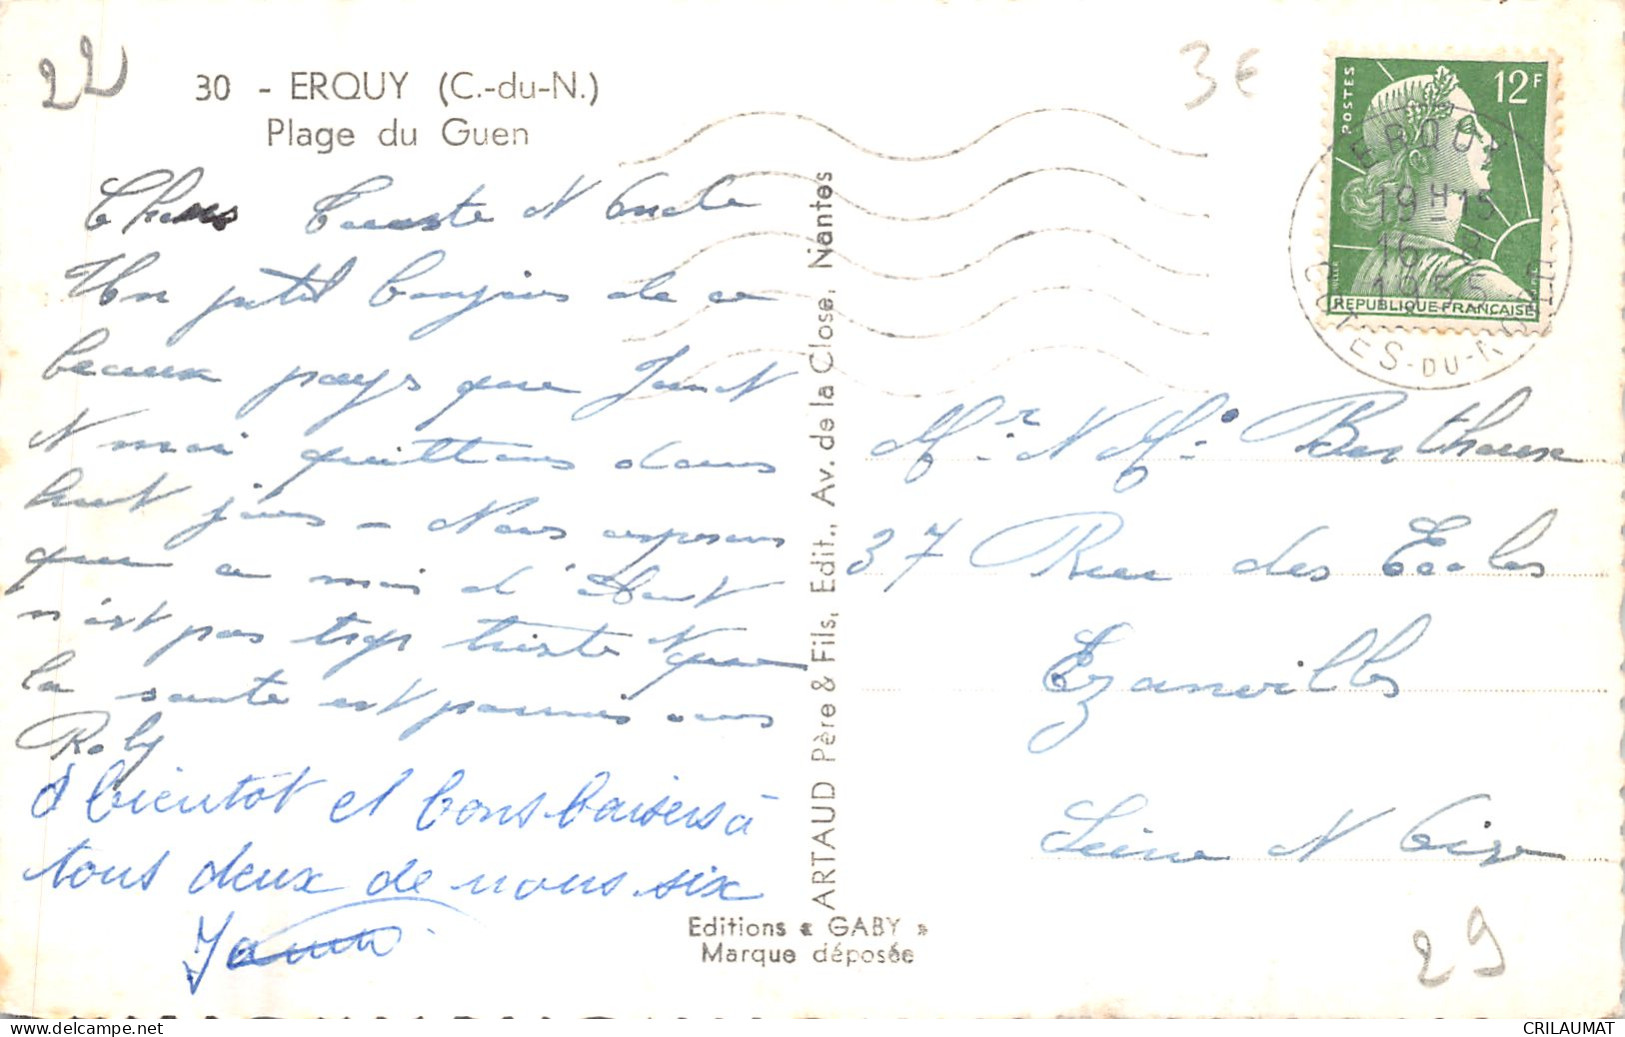 22
30 - ERQUY (C.-du-N.)
Plage du Guen
3€
POSTES
12F
REPUBLIQUE FRANÇAISE
ERQUY
19H15
16 - 8
1955
COTES-DU-NORD
Chers Tante et Oncle
Un petit bonjour de ce
beaux pays que Jean et
et moi quittons dans
huit jours - Nous esperons
que ce mois d'Aout
n'est pas trop triste et que
la sante est parmis vous
Roby
A bientôt et bons baisers à
tous deux de nous six
ARTAUD Père & Fils, Edit., Av. de la Close, Nantes
Editions « GABY »
Marque déposée
Mr. et Me. Berthoux
37 Rue des Ecoles
Ezanville
Seine et Oise
29
CRILAUMAT
www.delcampe.net